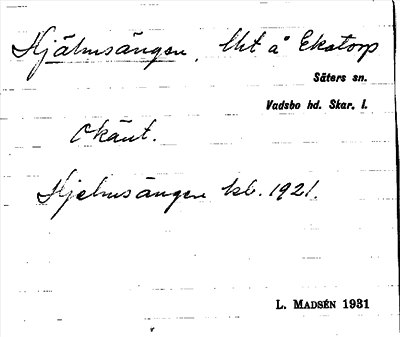 Hjälmsängen, lht å Ekstorp
Säters sn.
Vadsbo hd. Skar. l.
Okänt.
Hjelmsängen kb. 1921.
L. MADSÉN 1931